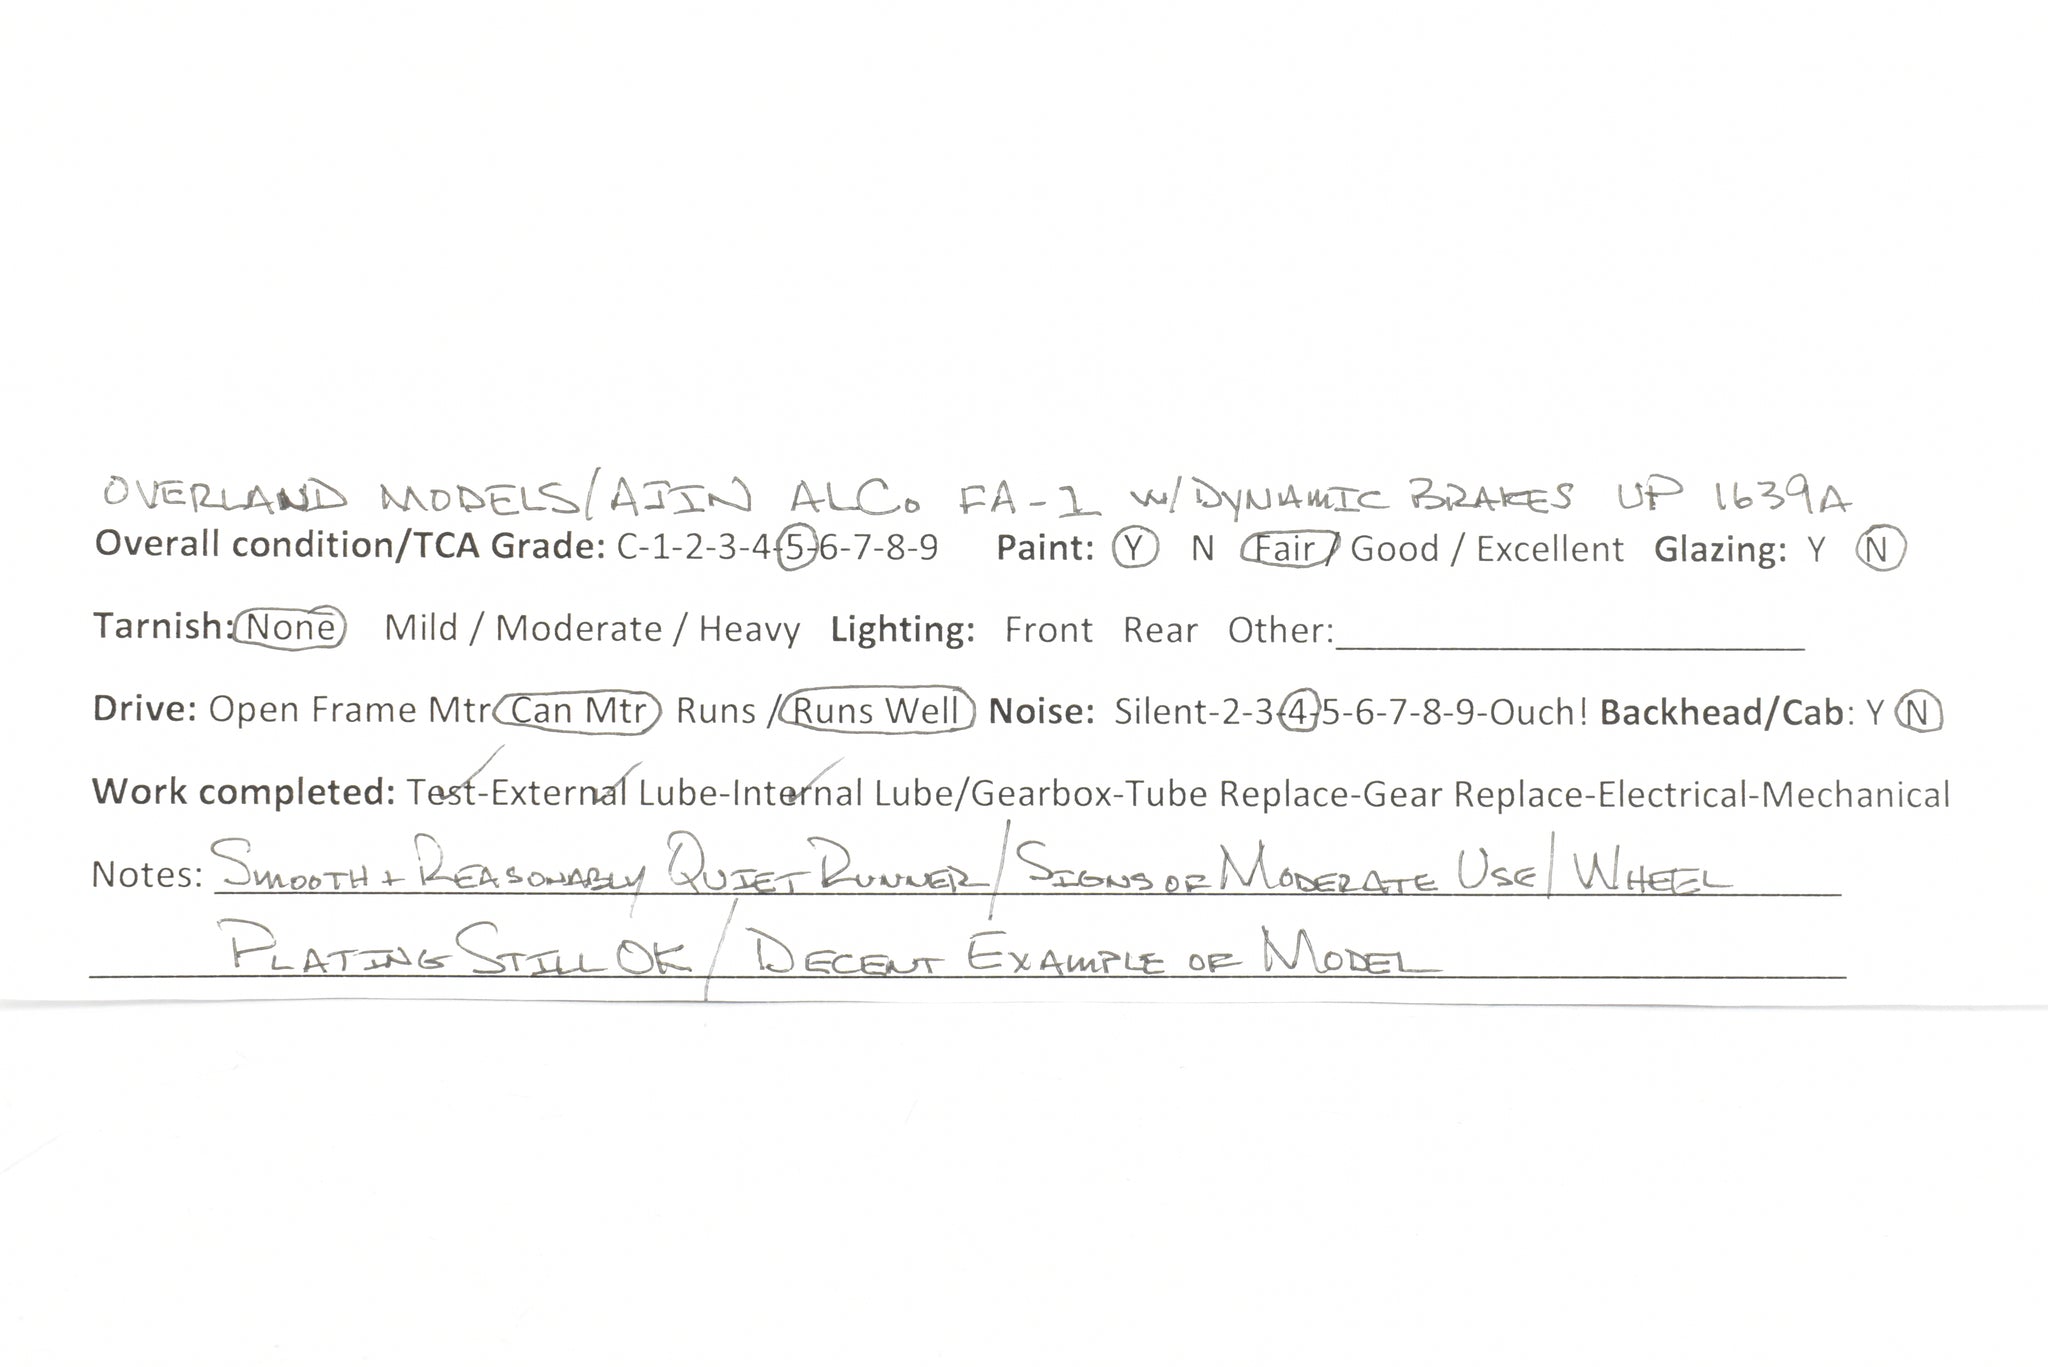 OVERLAND MODELS/AJIN ALCo FA-1 w/DYNAMIC BRAKES UP 1639A
Overall condition/TCA Grade: C-1-2-3-4-5-6-7-8-9 Paint: Y N Fair/ Good / Excellent Glazing: Y N
Tarnish: None Mild / Moderate / Heavy Lighting: Front Rear Other:
Drive: Open Frame Mtr Can Mtr Runs / Runs Well Noise: Silent-2-3-4-5-6-7-8-9-Ouch! Backhead/Cab: Y N
Work completed: Test-External Lube-Internal Lube/Gearbox-Tube Replace-Gear Replace-Electrical-Mechanical
Notes: SMOOTH + REASONABLY QUIET RUNNER/SIGNS OF MODERATE USE/WHEEL
PLATING STILL OK/DECENT EXAMPLE OF MODEL